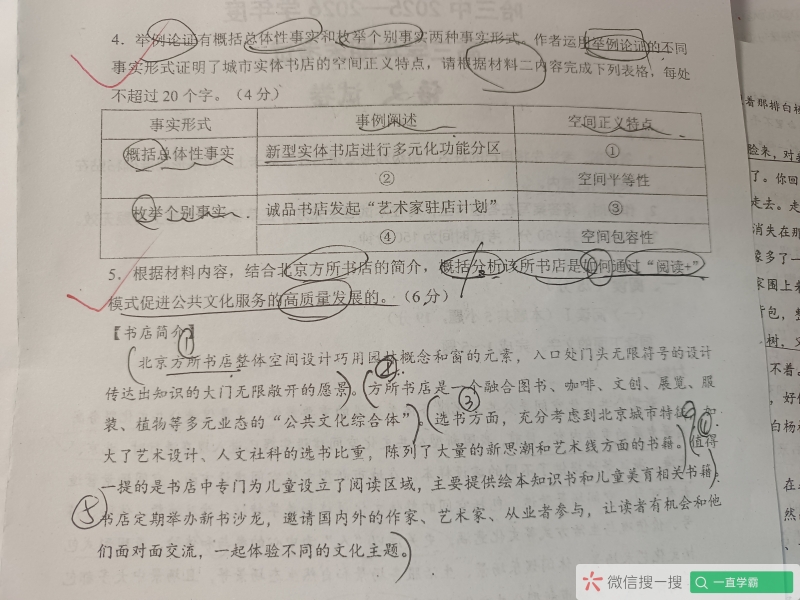 哈三中2025—2026学年度
4．举例论证有概括总体性事实和枚举个别事实两种事实形式。作者运用举例论证的不同
事实形式证明了城市实体书店的空间正义特点，请根据材料二内容完成下列表格，每处
不超过 20 个字。（4 分）
事实形式 事例阐述 空间正义特点
概括总体性事实 新型实体书店进行多元化功能分区 ①
② 空间平等性
枚举个别事实 诚品书店发起“艺术家驻店计划” ③
④ 空间包容性
5．根据材料内容，结合北京方所书店的简介，概括分析该所书店是如何通过“阅读+”
模式促进公共文化服务的高质量发展的。（6 分）
【书店简介】
①
北京方所书店整体空间设计巧用园林概念和窗的元素，入口处门头无限符号的设计
②
传达出知识的大门无限敞开的愿景。方所书店是一个融合图书、咖啡、文创、展览、服
③
装、植物等多元业态的“公共文化综合体”。选书方面，充分考虑到北京城市特
④
大了艺术设计、人文社科的选书比重，陈列了大量的新思潮和艺术线方面的书籍。值得
一提的是书店中专门为儿童设立了阅读区域，主要提供绘本知识书和儿童美育相关书籍。
⑤
书店定期举办新书沙龙，邀请国内外的作家、艺术家、从业者参与，让读者有机会和他
们面对面交流，一起体验不同的文化主题。
着那排白杨
脸来，对着
了。你回
走去。走
消失在那
象多了一
家围上来
背包，整
树，又
不着。
，好像
白杨衬
在
然
微信搜一搜 一直学霸